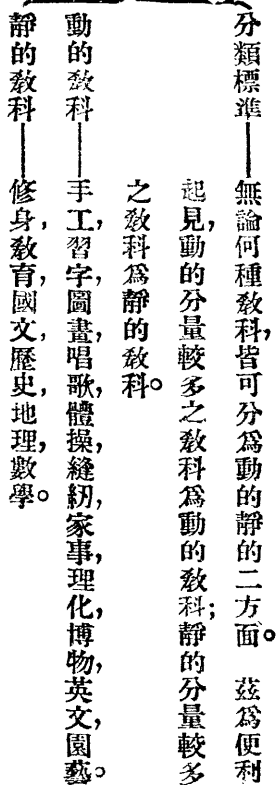 分類標準——無論何種敎科,皆可分爲動的靜的二方面。 茲爲便利
起見,動的分量較多之敎科爲動的敎科;靜的分量較多
之敎科爲靜的敎科。
動的敎科——手工,習字,圖畫,唱歌,體操,縫紉,家事,理化,博物,英文,園藝。
靜的敎科——修身,敎育,國文,歷史,地理,數學。